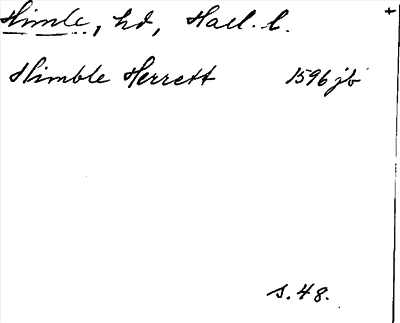 Himle, hd, Hall. l.
Himble Herrett 1596 jb
s. 48.